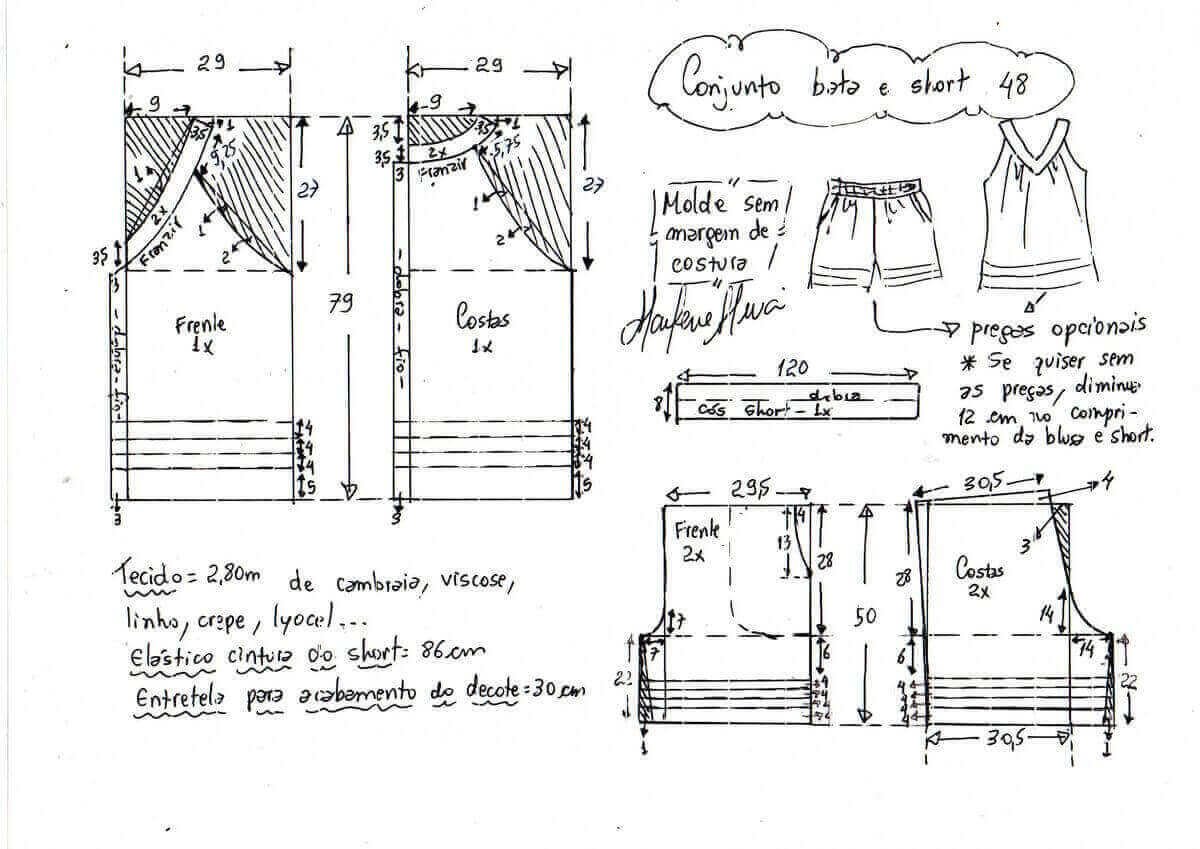 Conjunto bata e short 48
29
29
9
3,5
1
9,25
1
2x
Franzir
1
2
3,5
3
27
79
Frente
1x
dobra - fio
4
4
4
5
3
9
3,5
3,5
1
5,75
3,5
2x
Franzir
3
1
2
27
Costas
1x
dobra - fio
4
4
4
5
3
Molde sem
margem de
costura
preças opcionais
* Se quiser sem
as preças, diminue
12 cm no compri-
mento da blusa e short.
120
8
dobra
cós short - 1x
Tecido = 2,80m de cambraia, viscose,
linho, crepe, lyocel...
Elástico cintura do short = 86cm
Entretela para acabamento do decote = 30cm
29,5
Frente
2x
4
13
28
7
7
6
22
4
4
4
4
1
50
30,5
4
3
28
Costas
2x
14
14
6
4
4
4
4
22
30,5
1